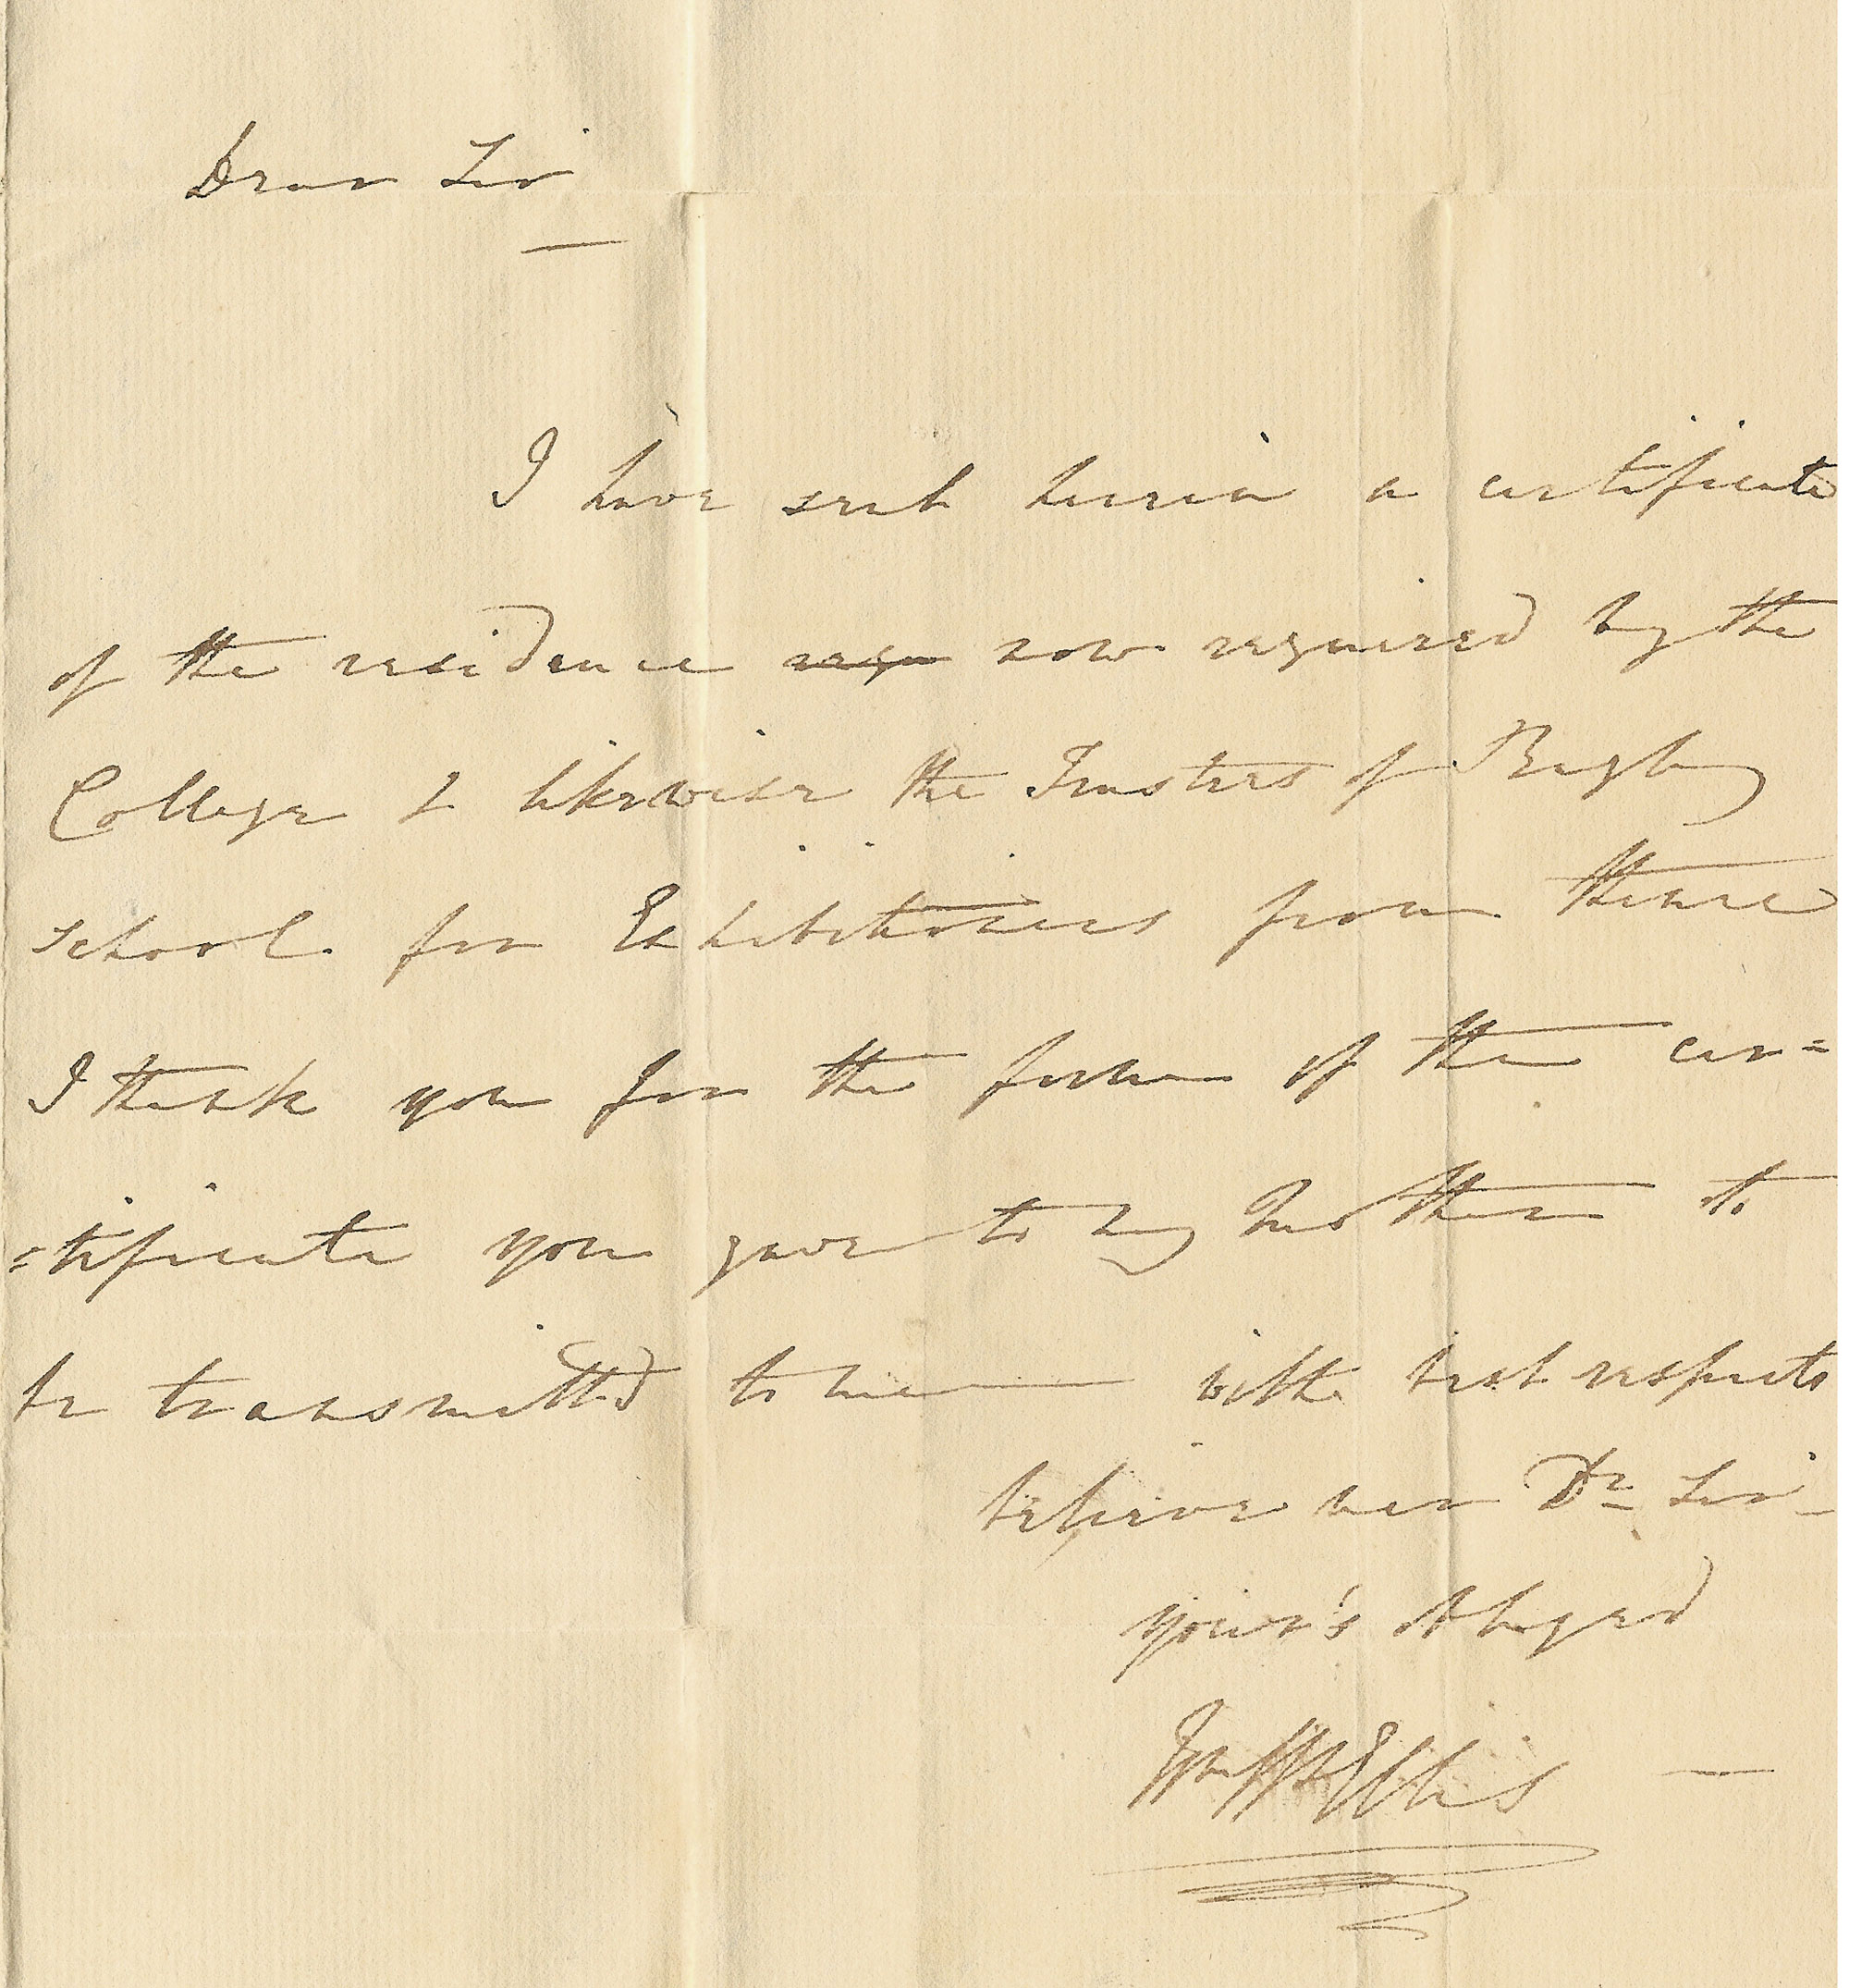 Dear Sir
I have sent herein a certificate
of the residence requ now required by the
College & likewise the Trustees of Rugby
School for Exhibitioners from thence
I thank you for the form of the cer=
=tificate you gave to my brother to
be transmitted to me with best respects
believe me Dr Sir
your's obliged
Wm Webb Ellis